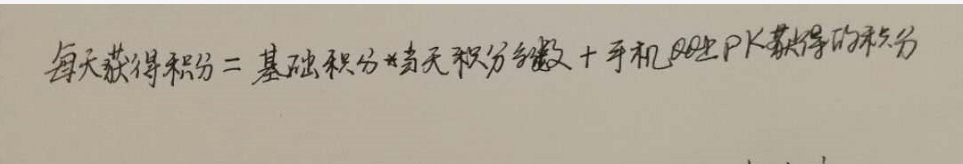 每天获得积分=基础积分*当天积分系数+手机QQ上PK获得的积分